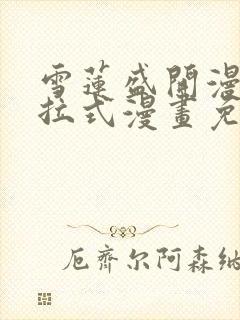 雪蓮盛開漫
拉式漫畫免
厄齊尔阿森納